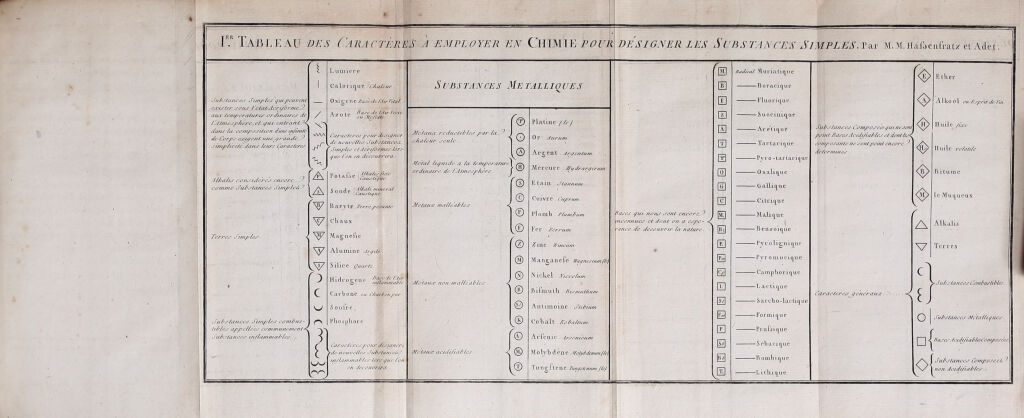 I.ER TABLEAU DES CARACTÈRES À EMPLOYER EN CHIMIE POUR DÉSIGNER LES SUBSTANCES SIMPLES. Par M.M. Hassenfratz et Adet.
Substances Simples qui peuvent
exister sous l'état Aériforme
aux températures ordinaires de
l'Atmosphere, et qui entrent
dans la composition d'un
de Corps exigent une grande
simplicité dans leurs Caracteres
Lumiere
Calorique Chaleur
Oxigene Base de l'Air Vital
Azote
Caracteres pour désigner
de nouvelles Substances
Simples et Aériformes lors
que l'on en découvrira
Alkalis considérés encore
comme Substances Simples
Potasse Alkali fixe
Caustique
Soude Alkali mineral
Caustique
Terres Simples
Baryte Terre pesante
Chaux
Magnesie
Alumine Argile
Silice Quartz
Substances Simples combus-
tibles appellées communement
Substances inflammables
Hidrogene Base de l'Air
inflammable
Carbone ou Charbon pur
Soufre
Phosphore
Caracteres pour désigner
de nouvelles Substances
inflammables lors que l'on
en découvrira
SUBSTANCES METALLIQUES
Metaux reductibles par la
chaleur seule
Platine
Or Aurum
Argent Argentum
Metal liquide à la temperature
ordinaire de l'Atmosphere
Mercure Hydrargirum
Metaux malléables
Etain Stannum
Cuivre Cuprum
Plomb Plumbum
Fer Ferrum
Zinc Zincum
Metaux non malléables
Manganese
Nickel Niccolum
Bismuth Bismuthum
Antimoine Stibium
Cobalt Kobaltum
Metaux acidifiables
Arsenic Arsenicum
Molybdene
Tungstene
Bases qui nous sont encore
inconnues et dont on a espe-
rance de decouvrir la nature
M Radical Muriatique
B Boracique
F Fluorique
S Succinique
A Acétique
T Tartarique
Pyro-tartarique
O Oxalique
G Gallique
C Citrique
Malique
Benzoique
Pyrolignique
Pyromucique
Camphorique
L Lactique
Saccho-lactique
Formique
P Prussique
Sébacique
Bombique
Lithique
Substances Composées qui ne sont
point Bases Acidifiables et dont les
composants ne sont point encore
determinés
E Ether
A Alkool ou Esprit de Vin
H Huile fixe
Huile volatile
B Bitume
M le Muqueux
Caracteres généraux
Alkalis
Terres
Substances Combustibles
Substances Métalliques
Bases Acidifiables Composées
Substances Composées
non Acidifiables